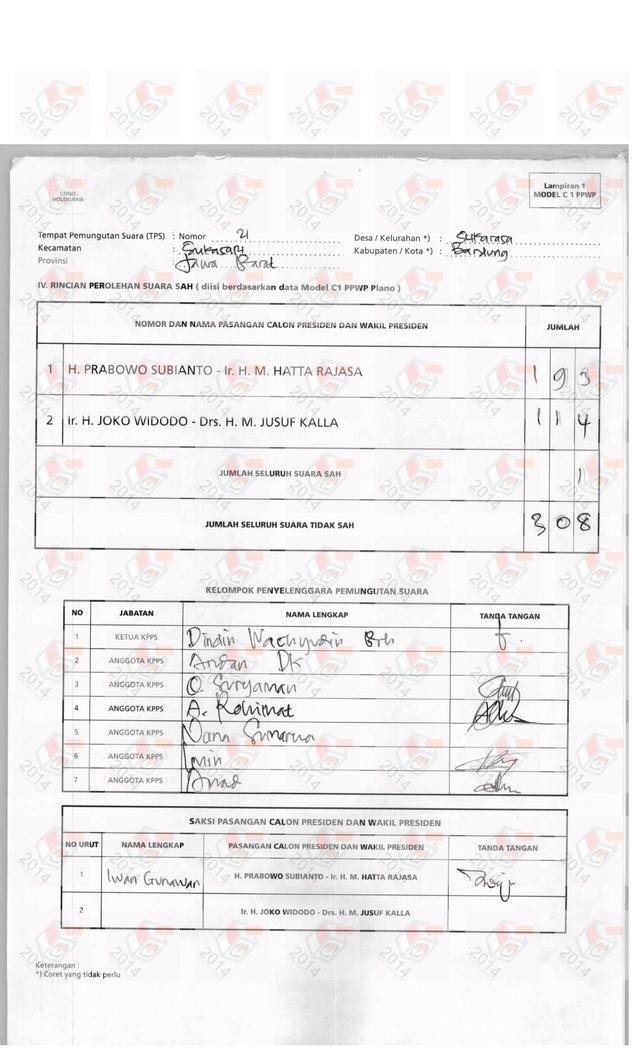 2014 2014 2014 2014 2014 2014 2014
LOGO HOLOGRAM
Lampiran 1
MODEL C 1 PPWP
Tempat Pemungutan Suara (TPS) : Nomor 21
Desa / Kelurahan *) : Sukarasa
Kecamatan : Sukasari
Kabupaten / Kota *) : Bandung
Provinsi : Jawa Barat
IV. RINCIAN PEROLEHAN SUARA SAH ( diisi berdasarkan data Model C1 PPWP Plano )
NOMOR DAN NAMA PASANGAN CALON PRESIDEN DAN WAKIL PRESIDEN JUMLAH
1 H. PRABOWO SUBIANTO - Ir. H. M. HATTA RAJASA 1 9 3
2 Ir. H. JOKO WIDODO - Drs. H. M. JUSUF KALLA 1 1 4
JUMLAH SELURUH SUARA SAH 1
JUMLAH SELURUH SUARA TIDAK SAH 3 0 8
KELOMPOK PENYELENGGARA PEMUNGUTAN SUARA
NO JABATAN NAMA LENGKAP TANDA TANGAN
1 KETUA KPPS Dindin
2 ANGGOTA KPPS DK
3 ANGGOTA KPPS O. Suryaman
4 ANGGOTA KPPS A. Rohimat
5 ANGGOTA KPPS Nana Sumarna
6 ANGGOTA KPPS
7 ANGGOTA KPPS
SAKSI PASANGAN CALON PRESIDEN DAN WAKIL PRESIDEN
NO URUT NAMA LENGKAP PASANGAN CALON PRESIDEN DAN WAKIL PRESIDEN TANDA TANGAN
1 Iwan Gunawan H. PRABOWO SUBIANTO - Ir. H. M. HATTA RAJASA
2 Ir. H. JOKO WIDODO - Drs. H. M. JUSUF KALLA
Keterangan :
*) Coret yang tidak perlu